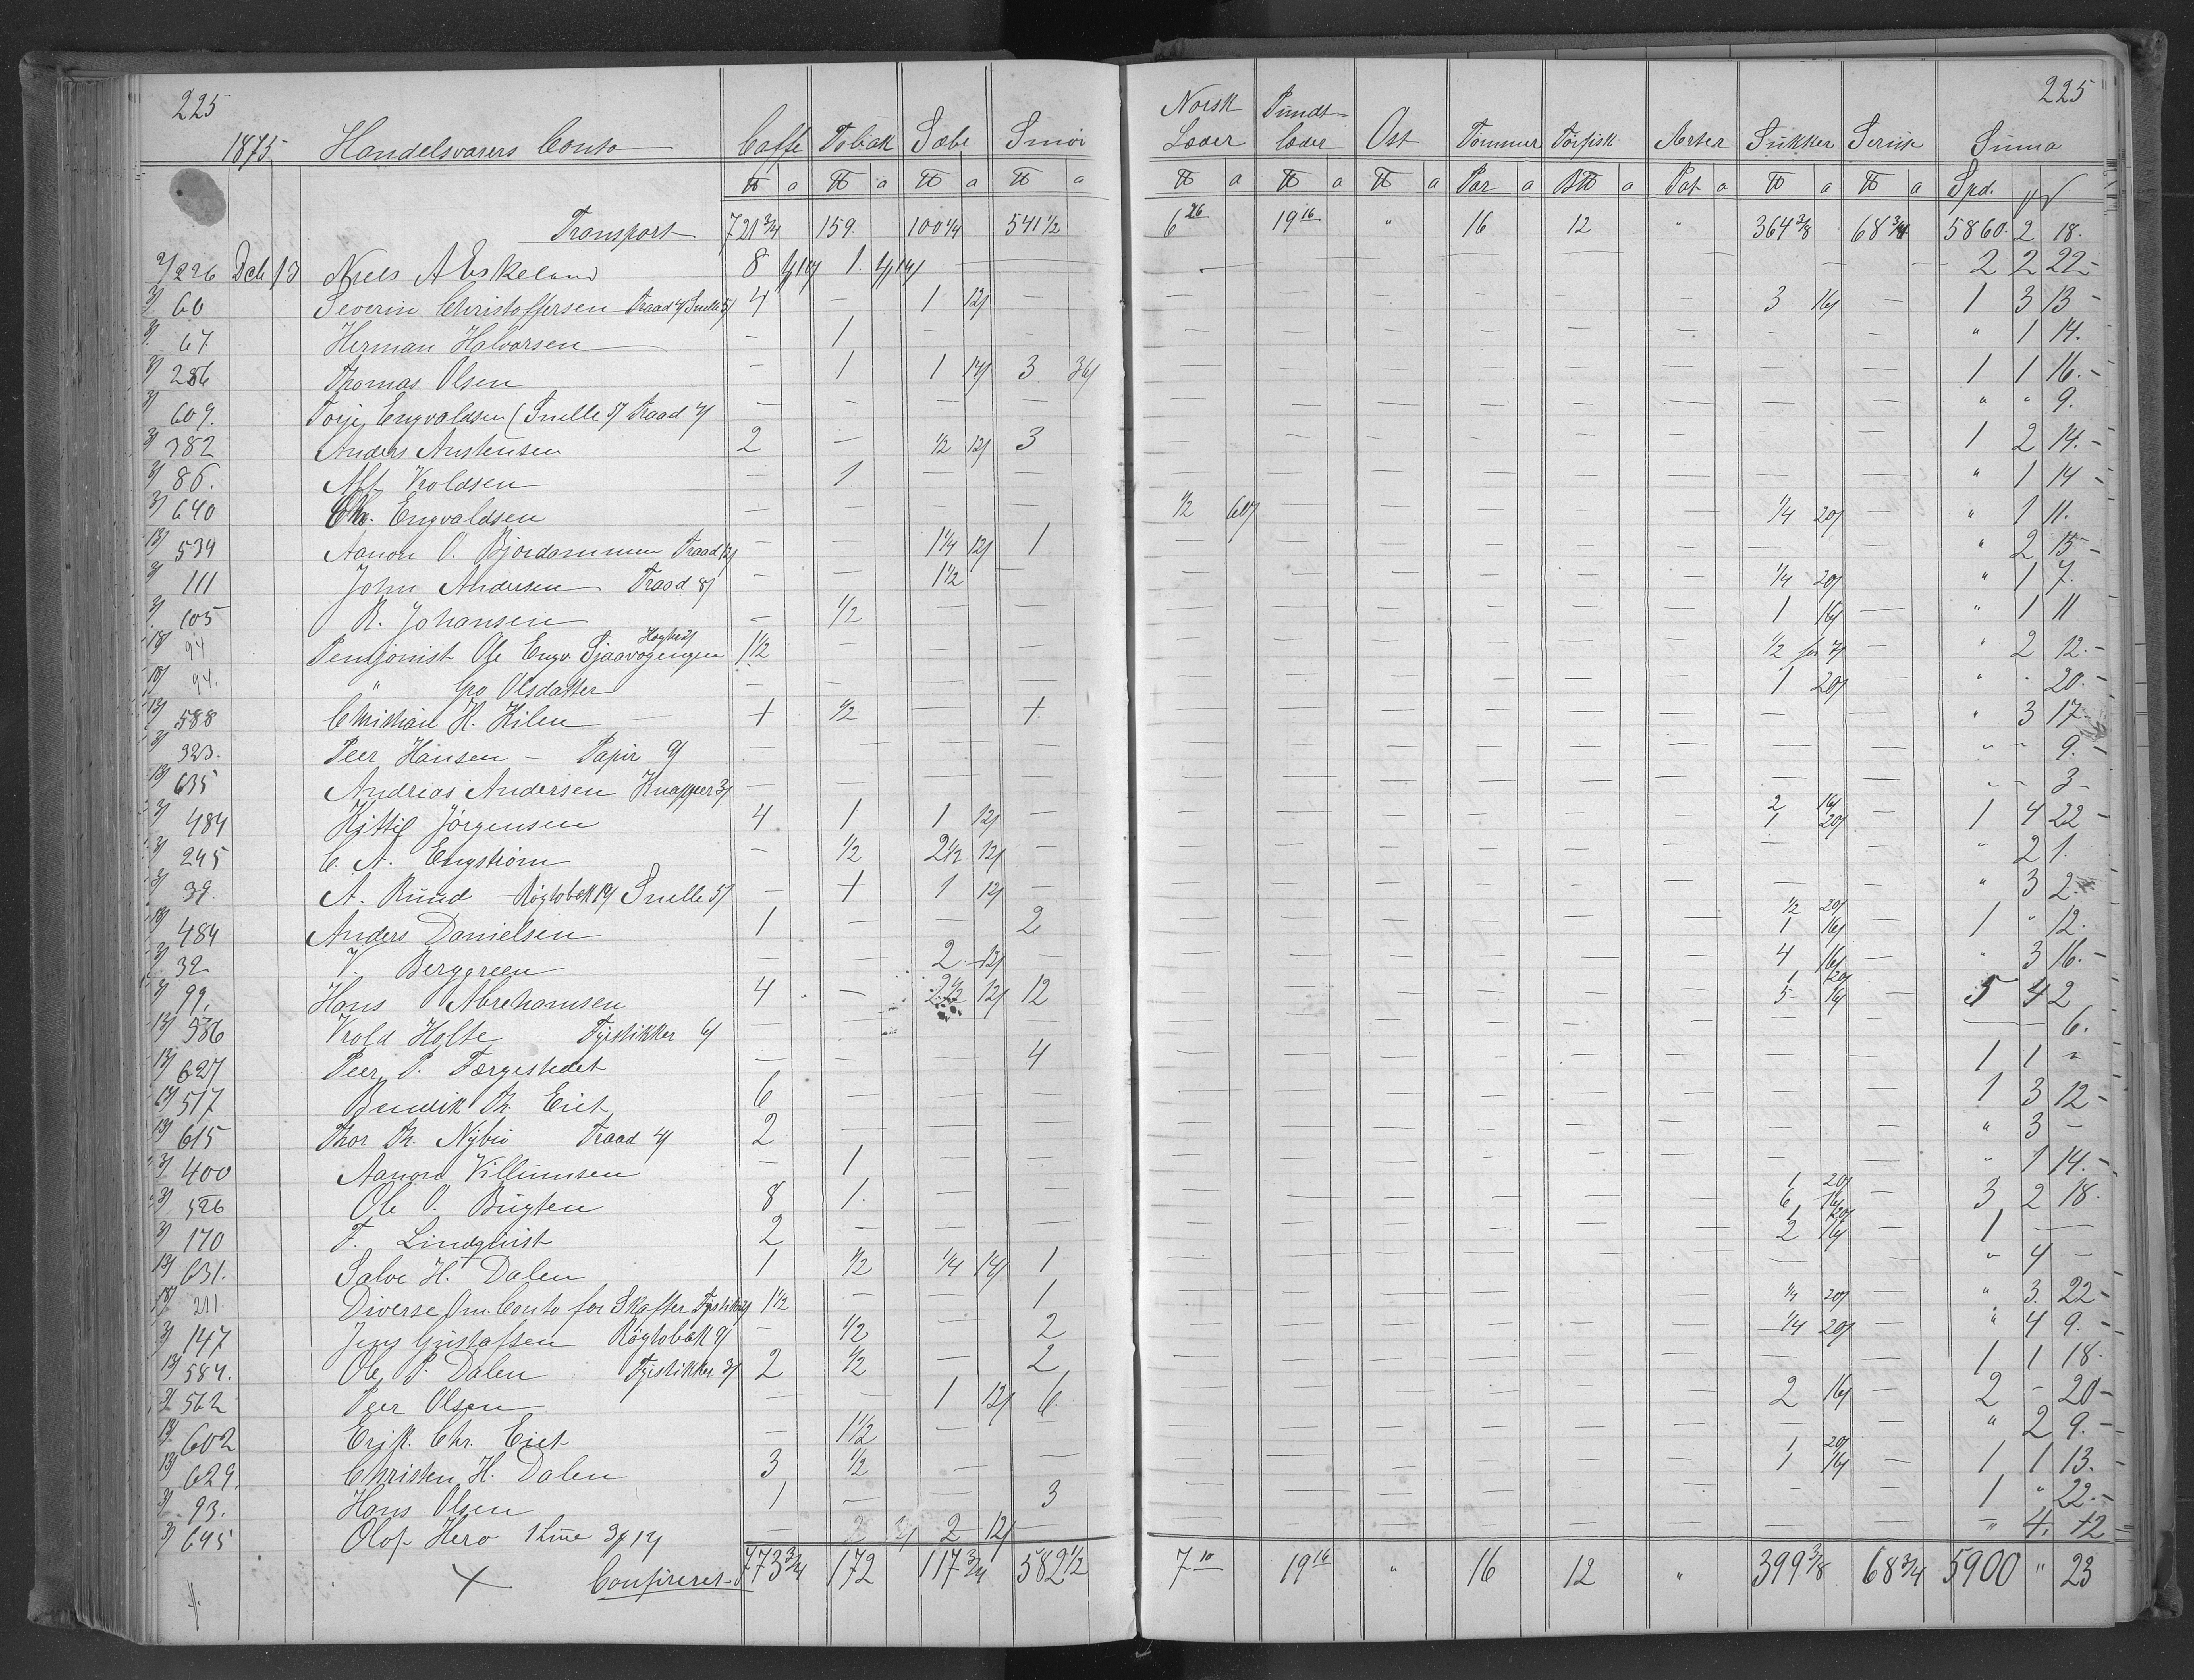 225 225
1875 Handelsvarers Conto Caffe Tobak Sæbe Smør Norsk Læder Pundt-læder Ost Tommer Tørfisk Aerter Sukker Summa
₶ a ₶ a ₶ a ₶ a ₶ a ₶ a ₶ a Par a B₶ a Pot a ₶ a ₶ a Spd.
Transport 721 3/4 159. 100 1/4 541 1/2 6 26 19 16 " 16 12 " 364 3/8 68 3/4 5860. 2 18.
226 Dcb 13 Niels A Eskeland 8 1. — — — — 2 2 22 -
60 Severin Christoffersen Traad 4/ Snelle 5/ 4 — 1 12/ — 3 16/ — 1 3 13 -
67 Herman Halvorsen — 1 — — " 1 14.
286 Thomas Olsen — 1 1 14/ 3 36/ 1 1 16. -
609. Torje Engvaldsen (Snelle 5/ Traad 4/ — — — — " " 9.
382 Anders Anstensen 2 — 1/2 12/ 3 1 2 14. -
86. Alf Kroldsen — 1 — — " 1 14 -
640 Chr. Engvaldsen — — — — 1/2 60/ 1/4 20/ — " 1 11.
534 Aanon O. Bjordammen Traad 12/ — — 1 1/4 12/ 1 " 2 15 -
111 John Andersen Traad 8/ — — 1 1/2 — 1/4 20/ " 1 7.
605 R. Johansen — 1/2 — — 1 16/ — " 1 11
94 Pensjonist Ole Engv. Sjaavogengen 1 1/2 — — — 1/2 for 7/ — " 2 12. -
94. " Gro Olsdatter — — — — 1 20/ — " . 20. -
588 Christian H. Hilen 1 1/2 — 1. " 3 17 -
323. Peer Hansen — Papir 9/ — — — — " — 9. -
635 Andreas Andersen Knapper 3/ — — — — " — 3 -
484 Kittil Jörgensen 4 1 1 12/ — 2 16/ 1 20/ — 1 4 22 -
245 C. A. Engström — 1/2 2 1/2 12/ — " 2 1.
39. A. Rund — Røgtobak 19/ Snelle 5/ — 1 1 12/ — " 3 2
484 Anders Danielsen 1 — — 2 1/2 20/ 1 16/ — 1 " 12.
32 V. Berggreen — — 2 12/ — 4 16/ — " 3 16. -
99. Hans Abrehamsen 4 — 2 1/2 12/ 12 1 20/ 5 16/ — 5 4 2
586 Krold Holte Fyrstikker 6/ — — — — — — 6.
627 Peer P. Færgestedet — — — 4 1 1 "
517 Bendik Th. Eiet 6 — — — 1 3 12 -
615 Thor Th. Nybu Traad 4/ 2 — — — " 3 —
400 Aanon Villumsen — 1 — — " 1 14. -
526 Ole O. Bugten 8 1. — — 1 20/ 6 16/ — 3 2 18.
170 F. Lindquist 2 — — — 1 20/ 2 16/ — 1 —
631. Salve H. Dalen 1 1/2 1/4 14/ 1 " 4 —
211. Diverse Om. Conto for Skaffer 1 1/2 — — 1 1/4 20/ — " 3. 22 -
147 Jens Gustafsen Røgtobak 9/ — 1/2 — 2 1/4 20/ — " 4 9. -
584. Ole P. Dalen Fyrstikker 3/ 2 1/2 — 2 1 1 18.
562 Peer Olsen — — 1 12/ 6. 2 16/ — 2 — 20 -
602 Erik Chr. Eiet — 1 1/2 — — " 2 9. -
629. Christen H. Dalen 3 1/2 — — 1 20/ 1 16/ — 1 1 13. -
93. Hans Olsen 1 — — 3 1 " 22. -
645 Olof Hero — 2 2 12/ — " 4. 12 -
773 3/4 172 117 3/4 582 1/2 7 10 19 16 " 16 12 " 399 3/8 68 3/4 5900 " 23